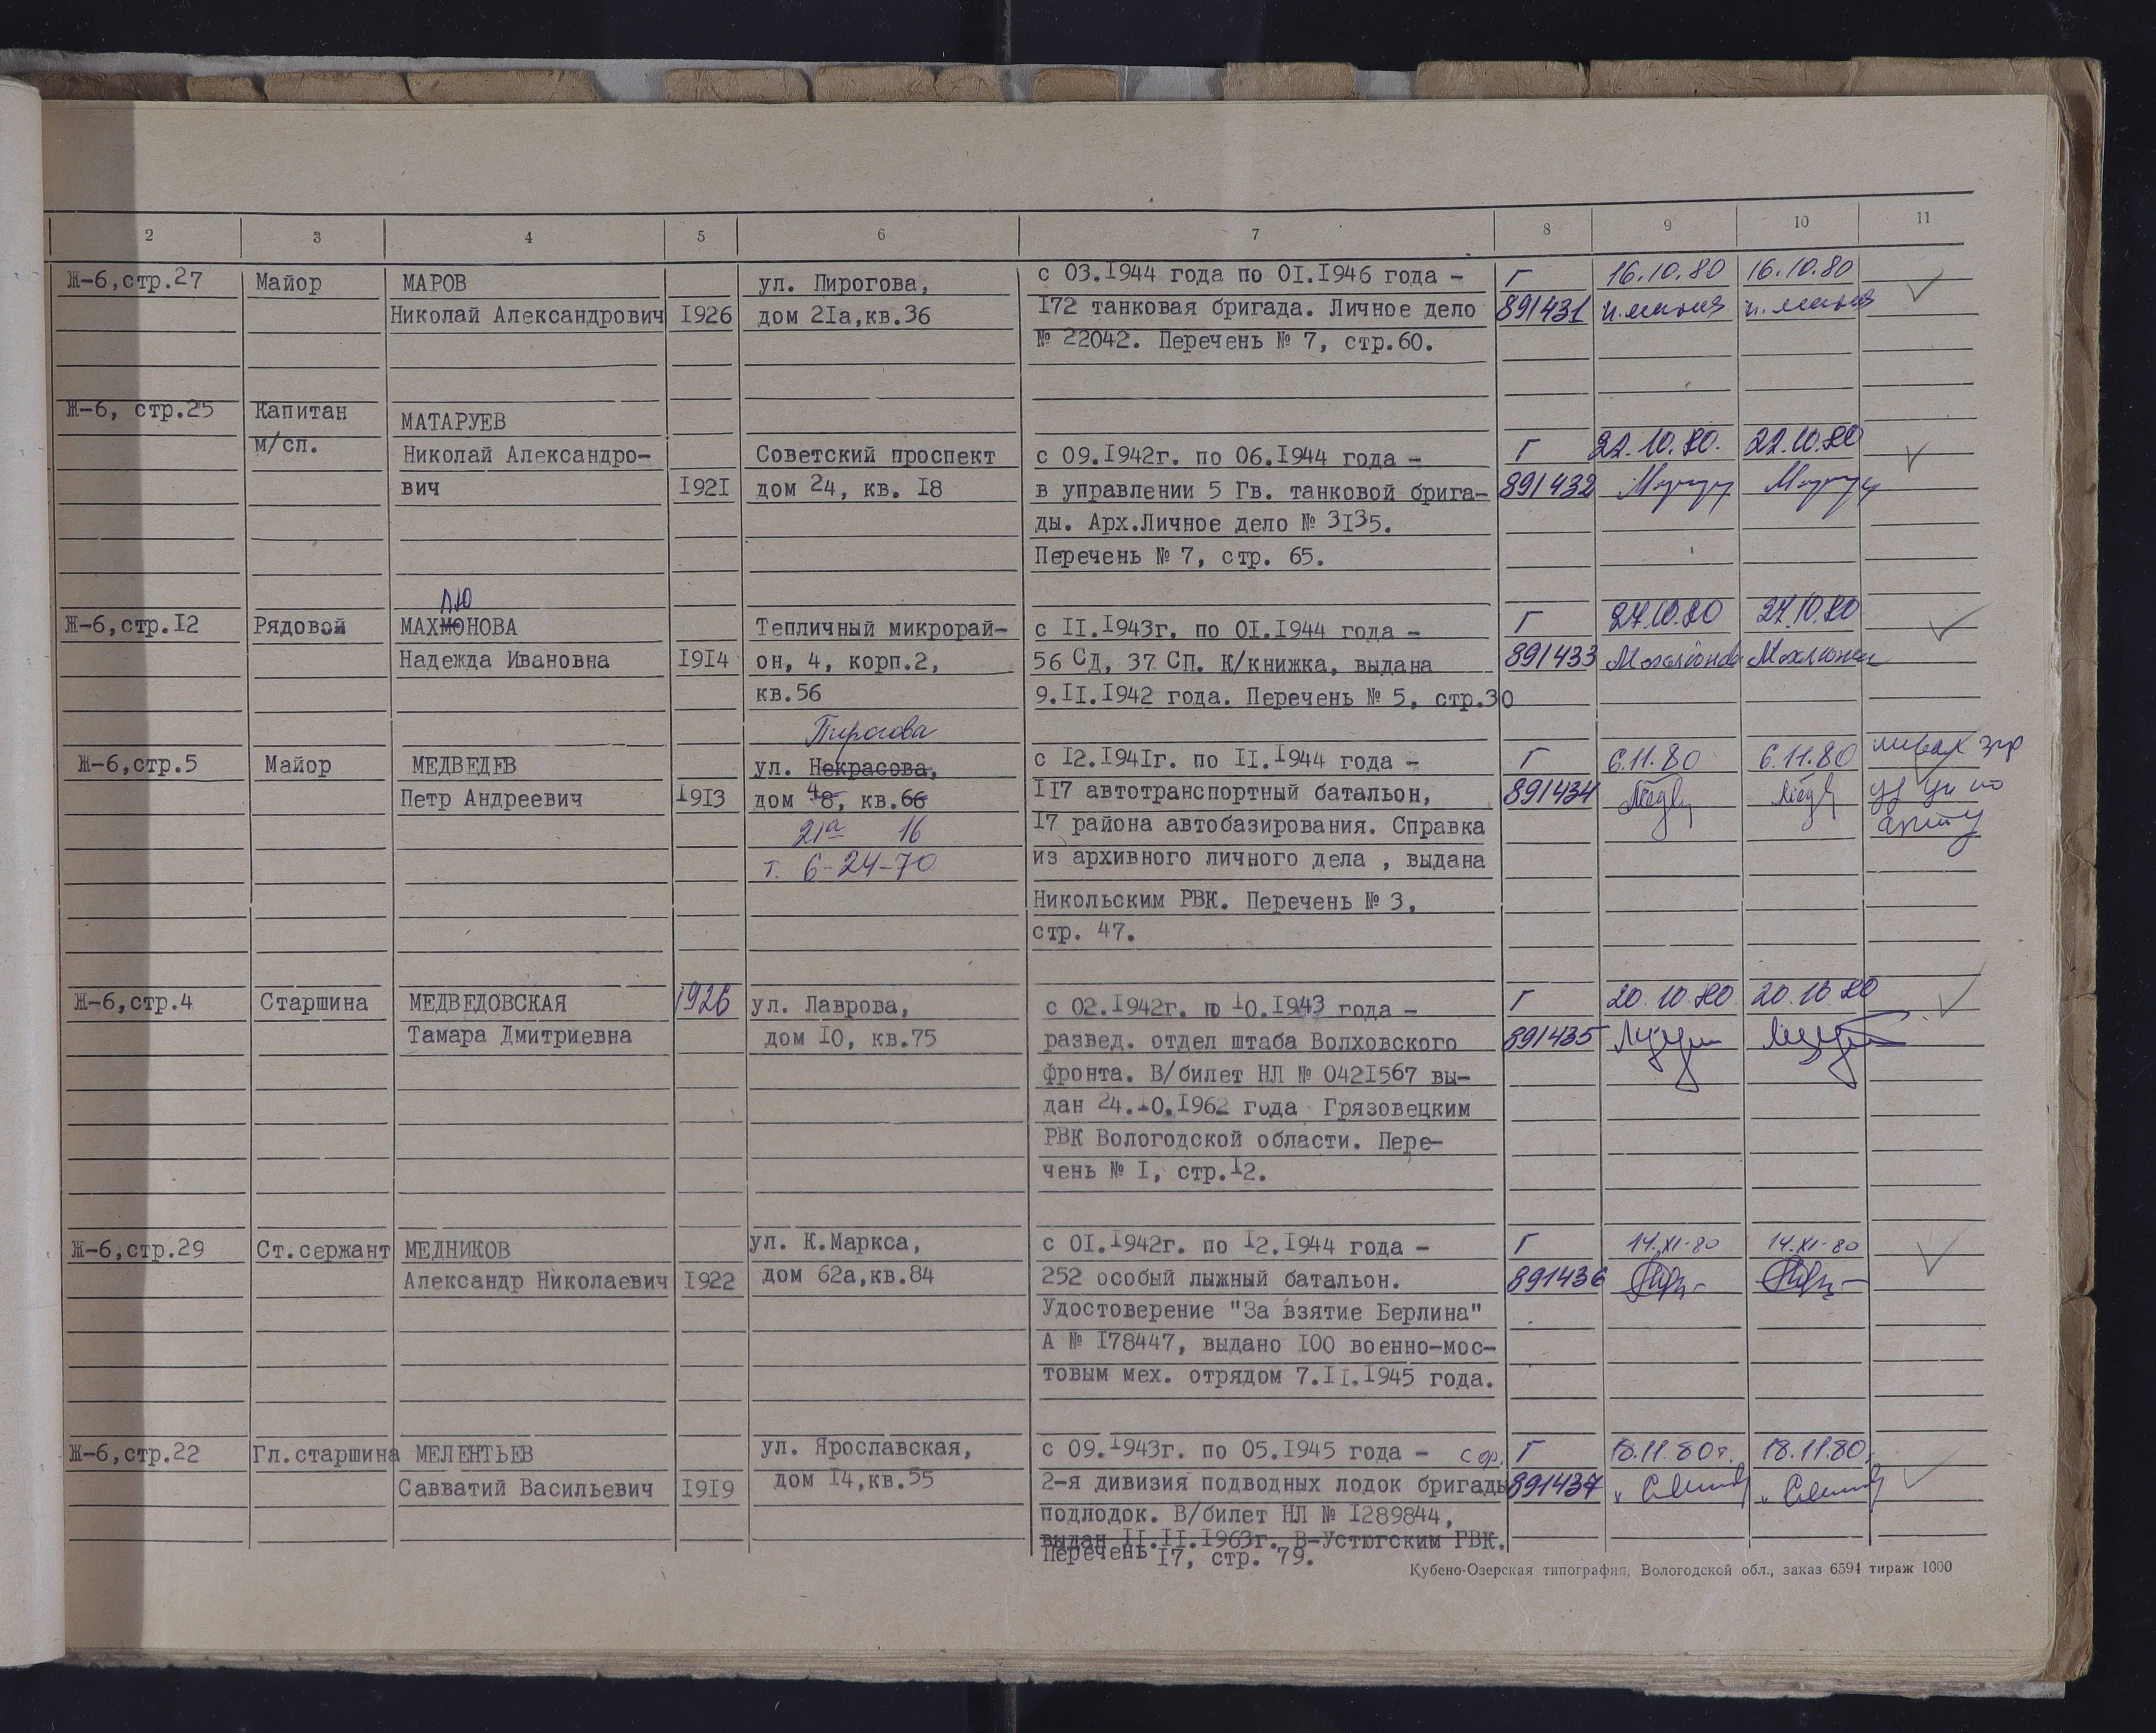 2 3 4 5 6 7 8 9 10 11
Ж-6,стр.27 Майор МАРОВ ул. Пирогова, с 03.I944 года по OI.I946 года – Г 16.10.80 16.10.80
Николай Александрович I926 дом 2Iа,кв.36 I72 танковая бригада. Личное дело 891431
№ 22042. Перечень № 7, стр.60.
Ж-6, стр.25 Капитан МАТАРУЕВ
м/сл. Николай Александро- Советский проспект с 09.I942г. по 06.I944 года – Г 22.10.80. 22.10.80
вич I92I дом 24, кв. I8 в управлении 5 Гв. танковой брига- 891432
ды. Арх.Личное дело № 3I35.
Перечень № 7, стр. 65.
лю
Ж-6,стр.I2 Рядовой МАХМОНОВА Тепличный микрорай- с II.I943г. по OI.I944 года – Г 27.10.80 27.10.80
Надежда Ивановна I9I4 он, 4, корп.2, 56 СД, 37 СП. К/книжка, выдана 891433
кв.56 9.II.I942 года. Перечень № 5, стр.30
Пирогова
Ж-6,стр.5 Майор МЕДВЕДЕВ ул. Некрасова, с I2.I94Iг. по II.I944 года – Г 6.11.80 6.11.80
Петр Андреевич I9I3 дом 48, кв.66 II7 автотранспортный батальон, 891434
21а 16 I7 района автобазирования. Справка
т. 6-24-70 из архивного личного дела , выдана
Никольским РВК. Перечень № 3,
стр. 47.
Ж-6,стр.4 Старшина МЕДВЕДОВСКАЯ 1926 ул. Лаврова, с 02.I942г. по I0.I943 года – Г 20.10.80. 20.10.80
Тамара Дмитриевна дом IO, кв.75 развед. отдел штаба Волховского 891435
фронта. В/билет НЛ № 042I567 вы-
дан 24.I0.I962 года Грязовецким
РВК Вологодской области. Пере-
чень № I, стр.I2.
Ж-6,стр.29 Ст.сержант МЕДНИКОВ ул. К.Маркса, с OI.I942г. по I2.I944 года – Г 14.XI-80 14.XI-80
Александр Николаевич I922 дом 62а,кв.84 252 особый лыжный батальон. 891436
Удостоверение "За взятие Берлина"
А № I78447, выдано IOO военно-мос-
товым мех. отрядом 7.II.I945 года.
Ж-6,стр.22 Гл.старшина МЕЛЕНТЬЕВ ул. Ярославская, с 09.I943г. по 05.I945 года – Г 18.11.80г. 18.11.80.
Савватий Васильевич I9I9 дом I4,кв.55 2-я дивизия подводных лодок бригады 891437
подлодок. В/билет НЛ № I289844,
выдан II.II.I963г. В-Устюгским РВК.
Перечень I7, стр. 79.
Кубено-Озерская типография, Вологодской обл., заказ 6594 тираж 1000